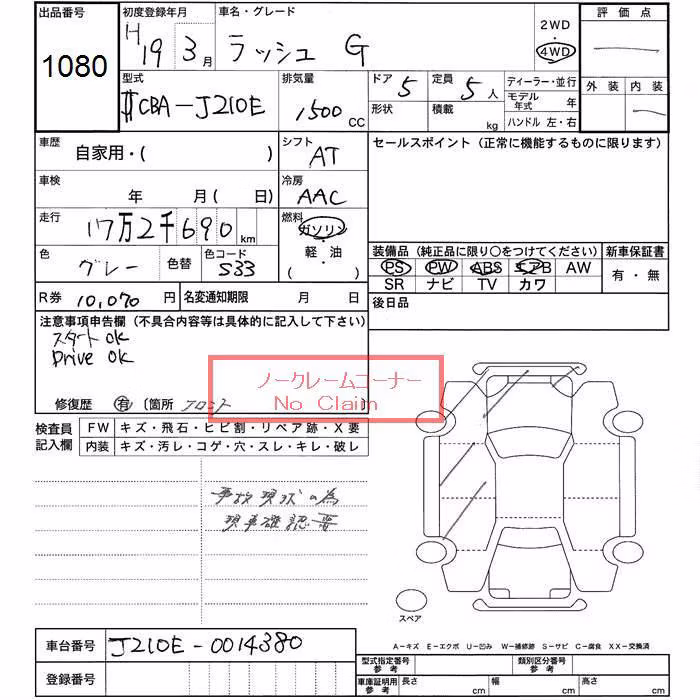 出品番号
1080
初度登録年月
H19 3月
車名・グレード
ラッシュ G
2WD
4WD
評価点
外装 内装
型式
CBA-J210E
排気量
1500 CC
ドア 5
形状
定員 5人
積載 kg
ディーラー・並行
モデル年式 年
ハンドル 左・右
車歴
自家用・( )
シフト
AT
セールスポイント (正常に機能するものに限ります)
車検
年 月( 日)
冷房
AAC
走行
17万2千690 km
燃料
ガソリン
軽・油
( )
色
グレー
色替
色コード
S33
装備品 (純正品に限り○をつけてください)
新車保証書
PS PW ABS エアB AW
SR ナビ TV カワ
有・無
R券 10,070 円
名変通知期限 月 日
後日品
注意事項申告欄 (不具合内容等は具体的に記入して下さい)
スタートOK
Drive OK
ノークレームコーナー
No Claim
修復歴 有 〔箇所 フロント
検査員記入欄
FW キズ・飛石・ヒビ割・リペア跡・X要
内装 キズ・汚レ・コゲ・穴・スレ・キレ・破レ
事故現状の為
現車確認要
スペア
A-キズ E-エクボ U-凹み W-補修跡 S-サビ C-腐食 XX-交換済
車台番号 J210E-0014380
登録番号
型式指定番号 参考
類別区分番号 参考
車庫証明用 参考 長さ cm 幅 cm 高さ cm